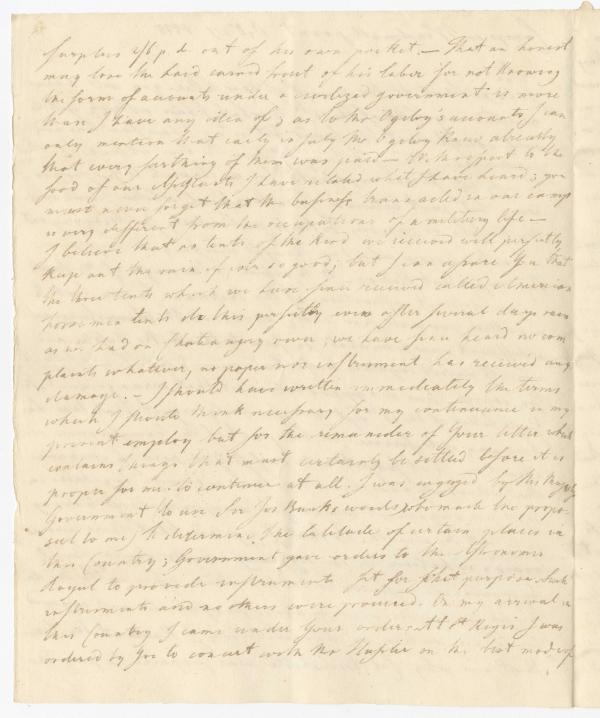 Surplus 2/6 p. d. out of his own pocket. — That an honest
may lose the hard earned fruit of his labor for not knowing
the form of accounts under a civilized government is more
than I have any idea of; as to Mr Ogilvy's accounts I can
only mention that early in July Mr Ogilvy knew already
that every farthing of them was paid — With respect to the
food of our I have related what I have heard; you
must never forget that the business transacted in our camp
is very different from the occupations of a military life —
I believe that no tents of the kind we received will perfectly
keep out the rain if ever so good; but I can assure you that
the three tents which we have since received called American
horsemen tents do this perfectly even after several days rain
as we had on river, we have since heard no com
plaints whatever, no paper nor instrument has received any
damage. — I should have written immediately the terms
which I should think necessary for my continuance in my
present employ but for the remainder of your letter which
contains things that must certainly be settled before it is
proper for me to continue at all. I was engaged by His Majesty's
Government to use Sir Jos Banks words (who made the propo
sal to me) to determine the latitude of certain places in
this Country; Government gave orders to the Astronomer
Royal to provide instruments fit for that purpose. Such
instruments and no others were procured. On my arrival in
this Country I came under your orders. At St Regis I was
ordered by you to concert with Mr Hassler on the best mode of